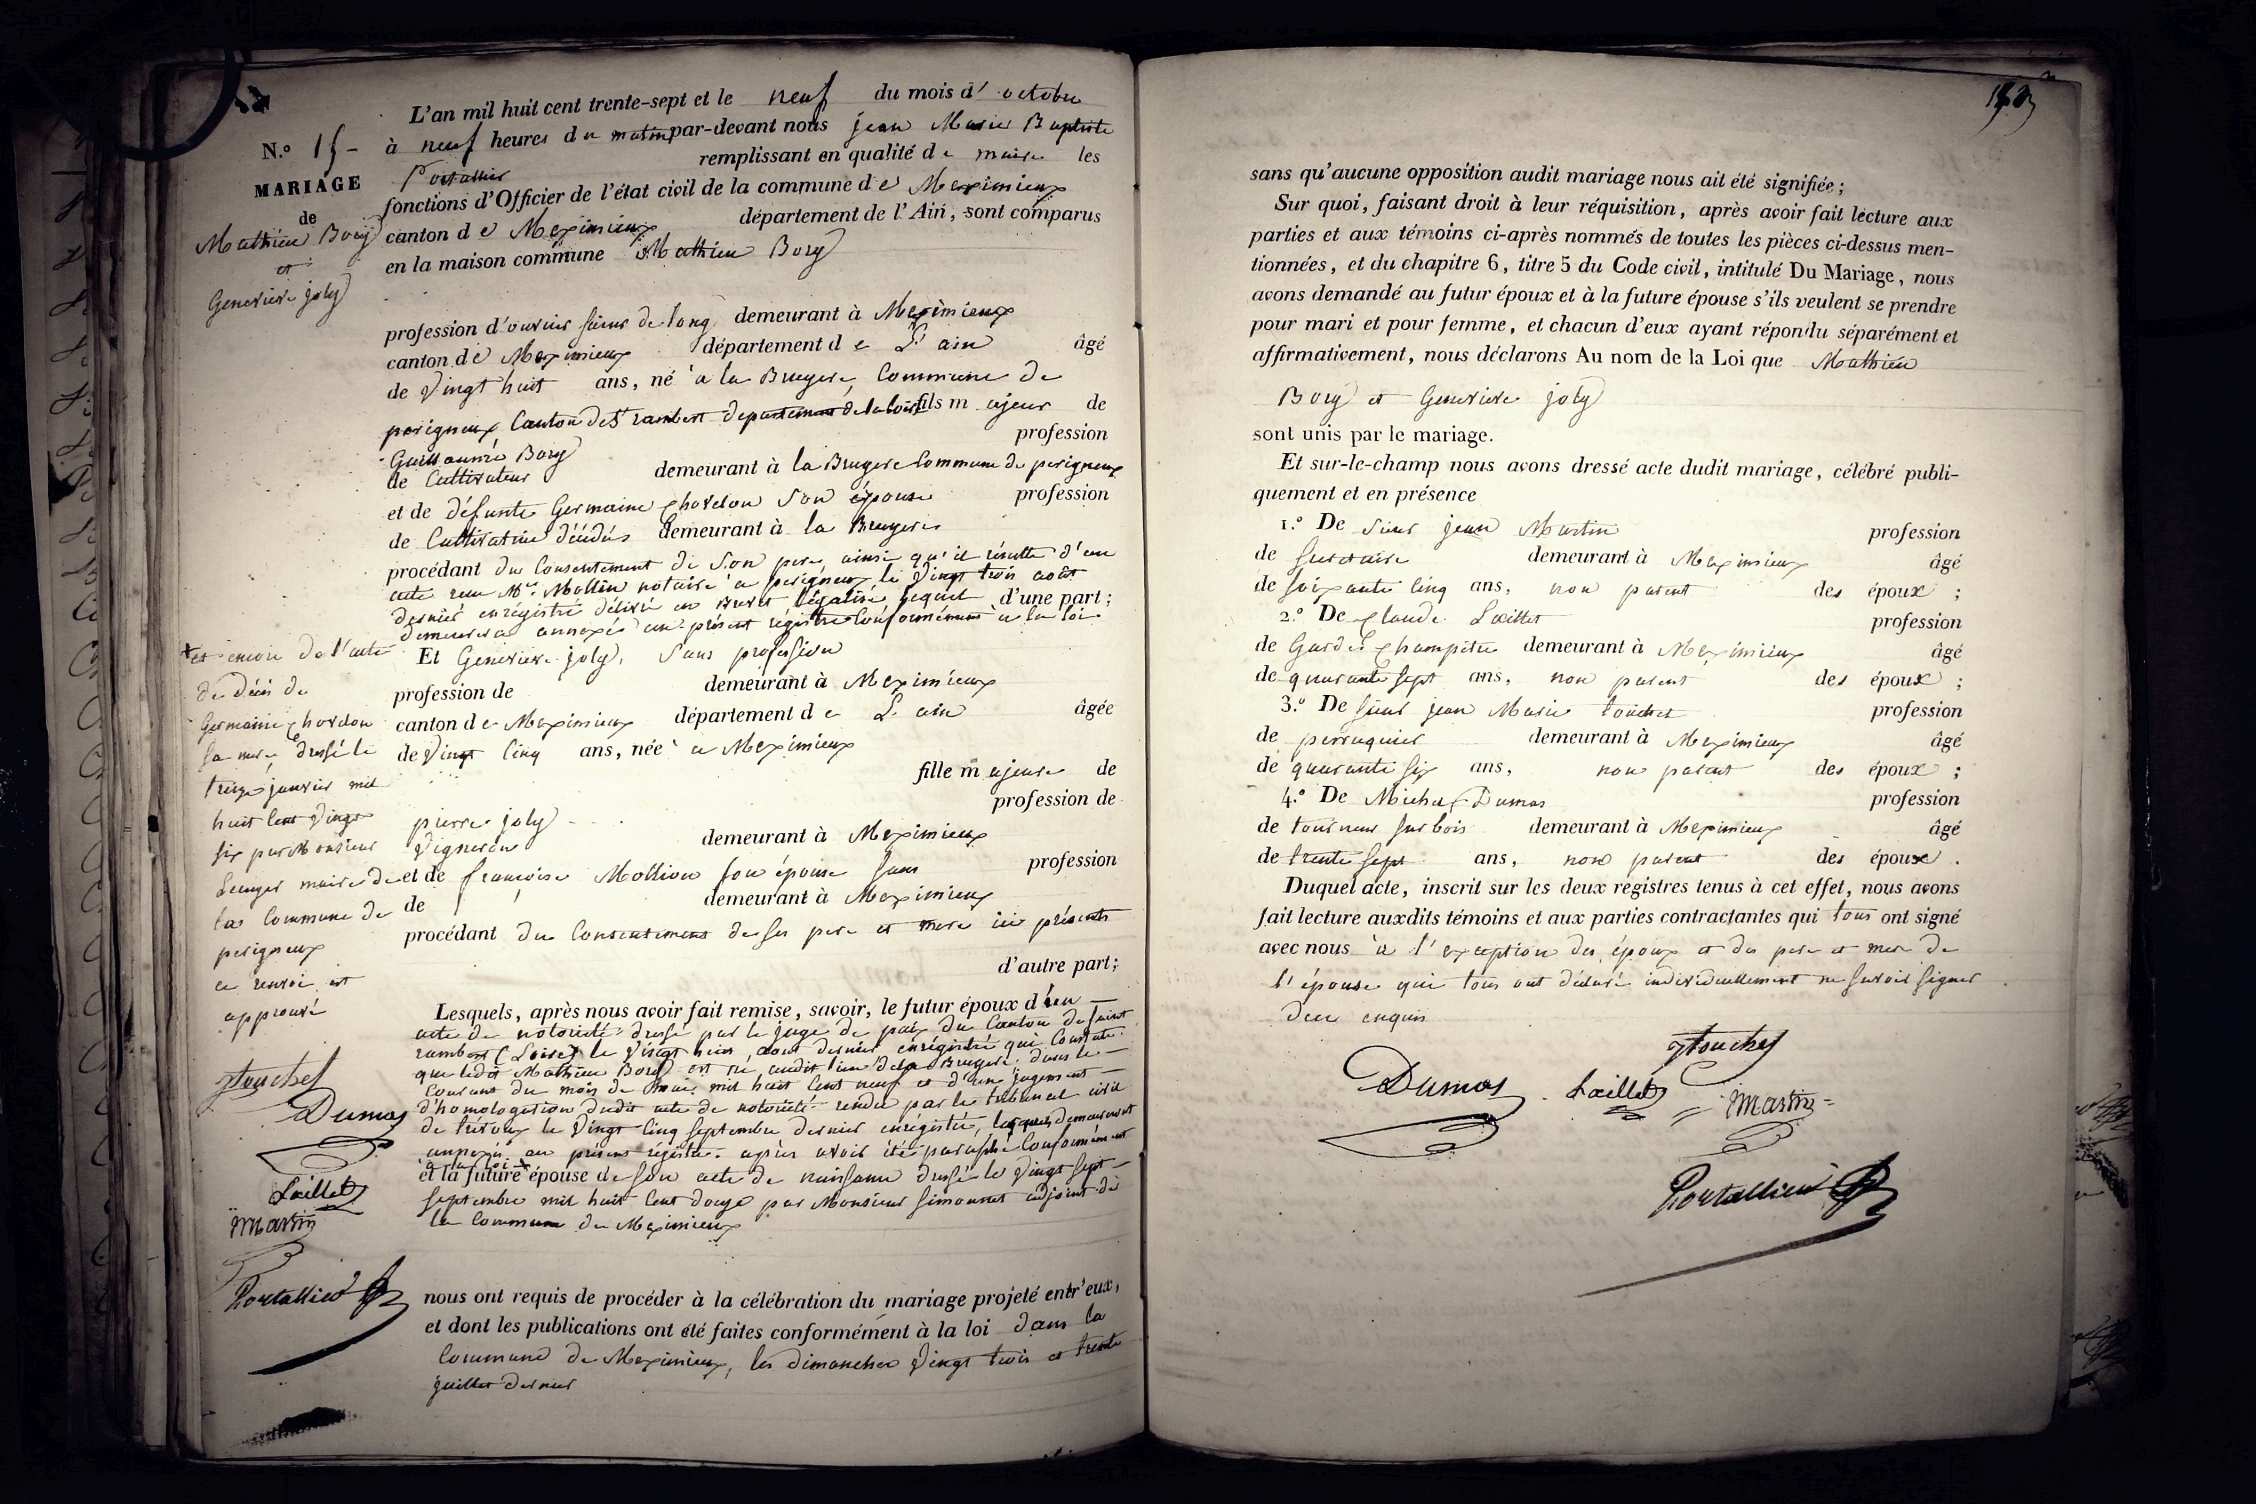 N.o 15
MARIAGE
de
Mathieu Bory
et
Genevieve joly
L'an mil huit cent trente-sept et le neuf du mois d' octobre
à neuf heures du matin par-devant nous jean Marie Baptiste
Portallier remplissant en qualité de maire les
fonctions d'Officier de l'état civil de la commune de Meximieux
canton de Meximieux département de l'Ain, sont comparus
en la maison commune Mathieu Bory
profession d'ouvrier sieur de long demeurant à Meximieux
canton de Meximieux département de L'ain âgé
de Vingt huit ans, né à la Bruyere, Commune de
perigneux Canton de St rambert departement de la loire fils majeur de
Guillaume Bory profession
de Cultivateur demeurant à la Bruyere Commune de perigneux
et de défunte Germaine Chovelon son épouse profession
de Cultivatrice décédée demeurant à la Bruyere
procédant du Consentement de son pere, ainsi qu'il résulte d'un
acte recu Me. Mollin notaire a perigneux le Vingt trois août
dernier enrégistré délivré en Brevet légalisé lequel d'une part;
demeurera annexé au présent registre Conformément à la loi
Et Genevieve joly, sans profession
profession de demeurant à Meximieux
canton de Meximieux département de L'ain âgée
de Vingt Cinq ans, née à Meximieux
fille majeure de
pierre joly profession de
Vigneron demeurant à Meximieux
et de francoise Mollion son épouse sans profession
de demeurant à Meximieux
procédant du Consentement de ses pere et mere ici présents
d'autre part;
Lesquels, après nous avoir fait remise, savoir, le futur époux d'un
acte de notorieté dressé par le juge de paix du Canton de saint
rambert (Loire) le Vingt huit aout dernier enrégistré qui Constate
que ledit Mathieu Bory est né audit lieu dela Bruyere dans le
Courant du mois de mai mil huit Cent neuf et d'un jugement
d'homologation dudit acte de notorieté rendu par le tribunal civil
de trévoux le Vingt Cinq septembre dernier enrégistré, lesquels demeureront
annexés au présent régistre après avoir été paraphé Conformément
à la loi
et la future épouse de son acte de naissance dressé le Vingt sept
septembre mil huit Cent douze par Monsieur Simonnet adjoint de
la Commune de Meximieux
nous ont requis de procéder à la célébration du mariage projeté entr'eux,
et dont les publications ont été faites conformément à la loi dans la
Commune de Meximieux, les dimanches Vingt trois et trente
juillet dernier
+ et encore de l'acte
de décès de
Germaine Chovelon
sa mere, dressé le
treize janvier mil
huit Cent Vingt
six par Monsieur
maire de
la Commune de
perigneux
ce renvoi est
approuvé
Jtouchet
Dumas
Loillet
Jmartin
Portallier
sans qu'aucune opposition audit mariage nous ait été signifiée;
Sur quoi, faisant droit à leur réquisition, après avoir fait lecture aux
parties et aux témoins ci-après nommés de toutes les pièces ci-dessus men-
tionnées, et du chapitre 6, titre 5 du Code civil, intitulé Du Mariage, nous
avons demandé au futur époux et à la future épouse s'ils veulent se prendre
pour mari et pour femme, et chacun d'eux ayant répondu séparément et
affirmativement, nous déclarons Au nom de la Loi que Mathieu
Bory et Genevieve joly
sont unis par le mariage.
Et sur-le-champ nous avons dressé acte dudit mariage, célébré publi-
quement et en présence
1.o De sieur jean Martin profession
de secretaire demeurant à Meximieux âgé
de soixante Cinq ans, non parent des époux;
2.o De Claude Loillet profession
de Garde Champetre demeurant à Meximieux âgé
de quarante sept ans, non parent des époux;
3.o De sieur jean Marie touchet profession
de perruquier demeurant à Meximieux âgé
de quarante six ans, non parent des époux;
4.o De Michel Dumas profession
de tourneur sur bois demeurant à Meximieux âgé
de trente sept ans, non parent des époux.
Duquel acte, inscrit sur les deux registres tenus à cet effet, nous avons
fait lecture auxdits témoins et aux parties contractantes qui tous ont signé
avec nous à l'exception des époux et des pere et mere de
l'épouse qui tous ont déclaré individuellement ne savoir signer
de ce enquis
Jtouchet
Dumas Loillet Jmartin
Portallier